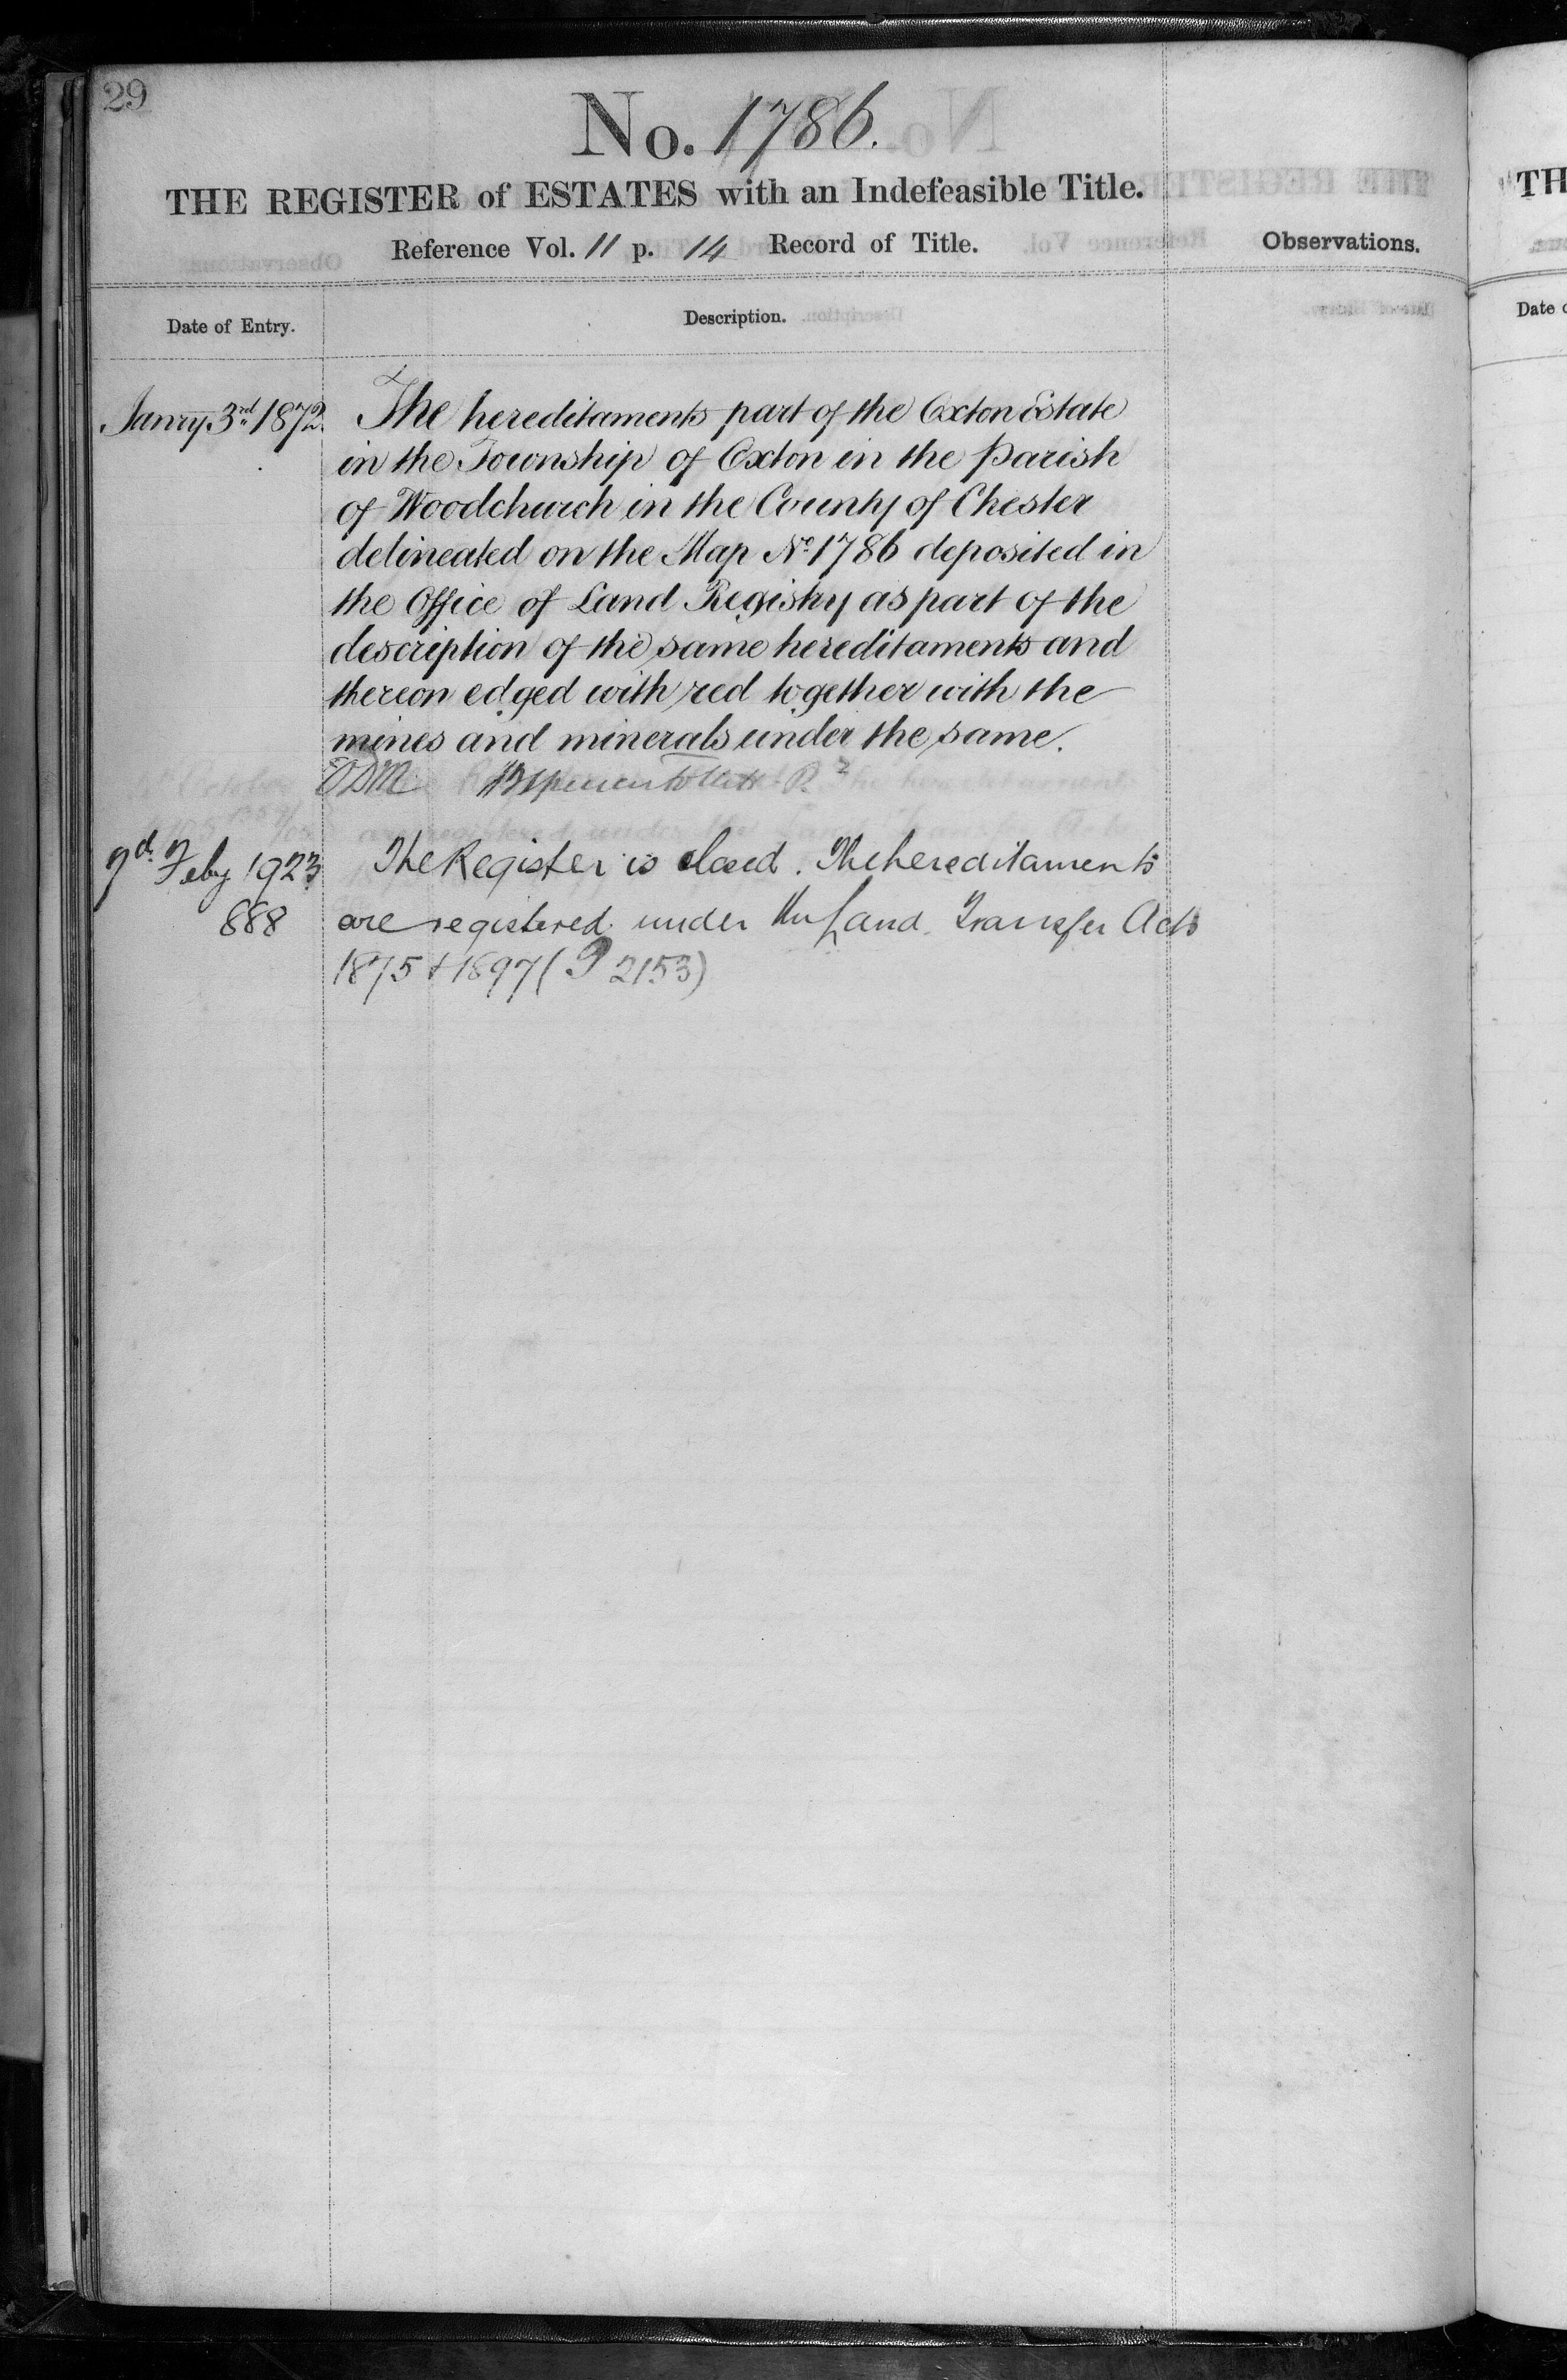 29
No. 1786.
THE REGISTER of ESTATES with an Indefeasible Title.
Reference Vol. 11 p. 14 Record of Title.
Observations.
Date of Entry.
Description.
Janry 3rd 1872.
The hereditaments part of the Oxton Estate
in the Township of Oxton in the Parish
of Woodchurch in the County of Chester
delineated on the Map No 1786 deposited in
the Office of Land Registry as part of the
description of the same hereditaments and
thereon edged with red together with the
mines and minerals under the same.
Feby 1923
888
The Register is closed. The hereditaments
are registered under the Land Transfer Acts
1875 + 1897 (P 2153)
TH
Date